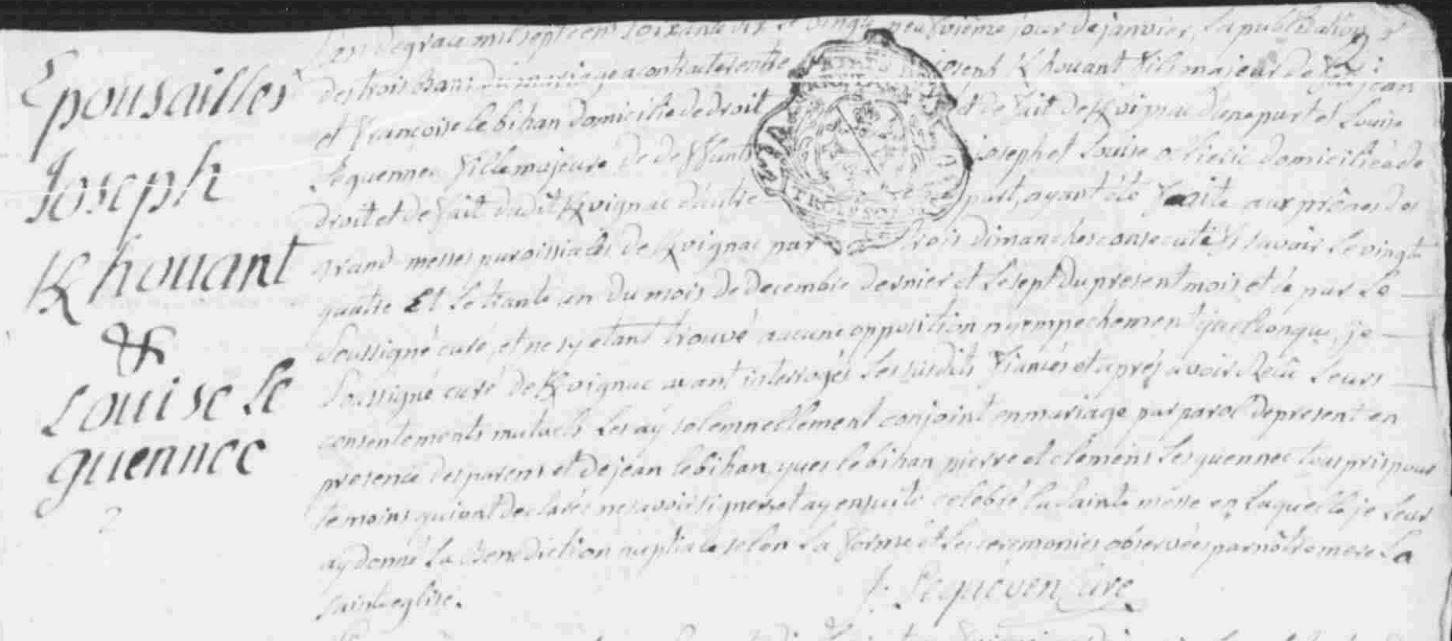 Epousailles
Joseph
K/houant
&
Louise Le
guennec
L'an de grace mil sept cens soixante dix le vingt neuvième jour de janvier, la publication
des trois bans du mariage a contracter entre joseph K/houant fils majeur de jean
et Francoise le bihan domicilié de droit et de fait de K/vignac d'une part et Louise
Le guennec fille majeure de joseph et Louise domiciliée de
droit et de fait dudit K/vignac d'autre part, ayant été faite aux prônes des
grand messes paroissiales de K/vignac par trois dimanches consecutifs savoir le vingt
quatre et le trante un du mois de decembre dernier et le sept du present mois et an par le
soussigné curé, et ne s'y etant trouvé aucune opposition ny empechement quelconque, je
soussigné curé de K/vignac ayant interrogés les susdits fiancés et aprés avoir Recû leurs
consentements mutuels les ay solemnellement conjoint en mariage par parol de present en
presence des parens et de jean le bihan, yves le bihan pierre et clemens Le guennec tous pris pour
temoins qui ont declarés ne savoir signer, et ay ensuite celebré la sainte messe en laquelle je leur
ay donné la Benediction nuptiale selon la forme et les ceremonies observées par nôtre mere la
sainte eglise.
curé